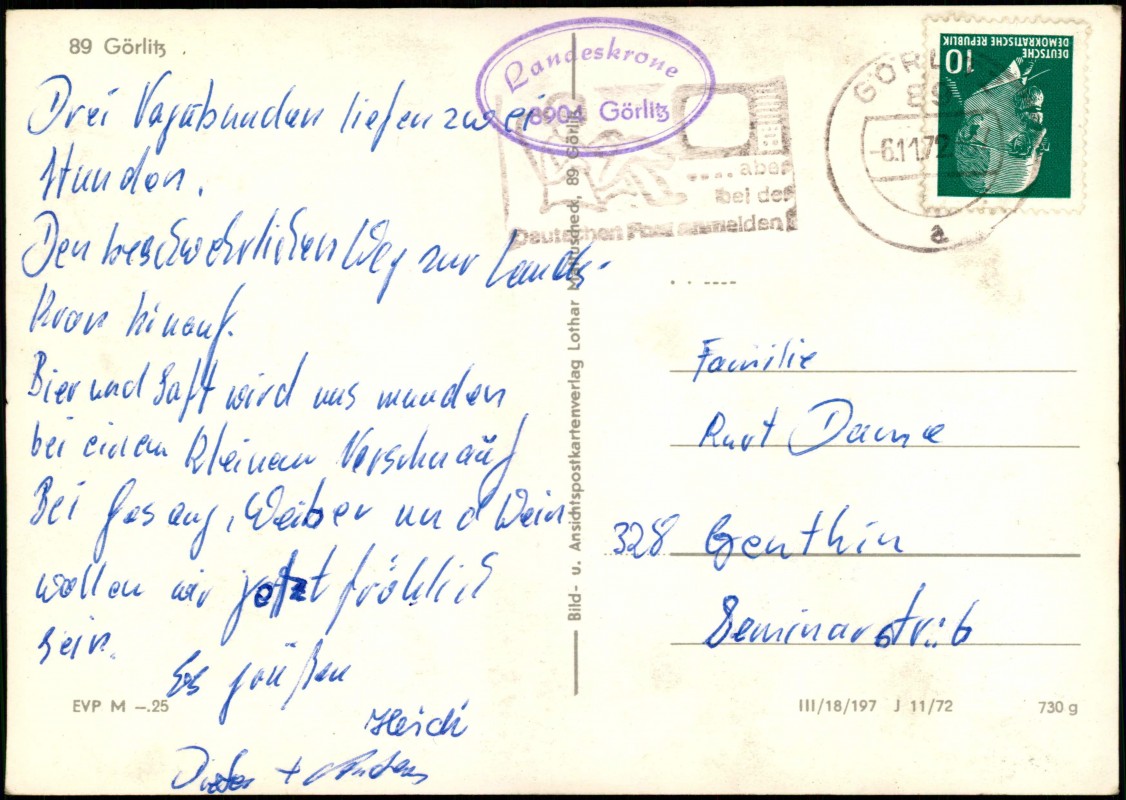 89 Görlitz
Drei Vagabunden liefen zwei
Stunden.
Den beschwehrlichen Weg zur Lands-
kron hinauf.
Bier und Saft wird uns munden
bei einem kleinen Verschnauf
Bei Gesang, Weiber und Wein
wollen wir jetzt fröhlich
sein.
Es grüßen
Heidi
Dieter +
EVP M –.25
Bild- u. Ansichtspostkartenverlag Lothar 89 Görlitz
Landeskrone
8904 Görlitz
.... aber
bei der
Deutschen Post anmelden
GÖRLITZ
89
-6.11.72
a
DEUTSCHE
DEMOKRATISCHE REPUBLIK
10
Familie
Kurt
328 Genthin
Seminarstr. 6
III/18/197 J 11/72
730 g